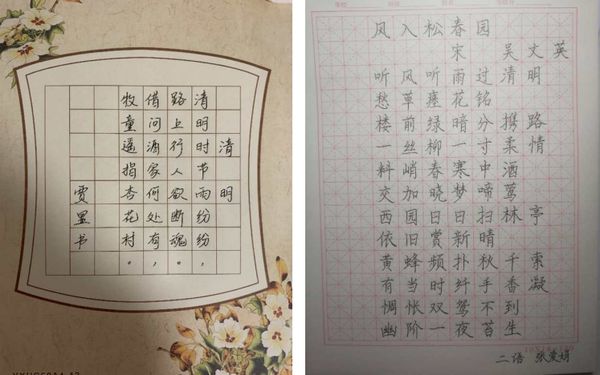 清明
清明时节雨纷纷，
路上行人欲断魂。
借问酒家何处有，
牧童遥指杏花村。
贾 书
风入松春园
宋 吴文英
听风听雨过清明
愁草瘗花铭
楼前绿暗分携路
一丝柳一寸柔情
料峭春寒中酒
交加晓梦啼莺
西园日日扫林亭
依旧赏新晴
黄蜂频扑秋千索
有当时纤手香凝
惆怅双鸳不到
幽阶一夜苔生
二语 张爱娟